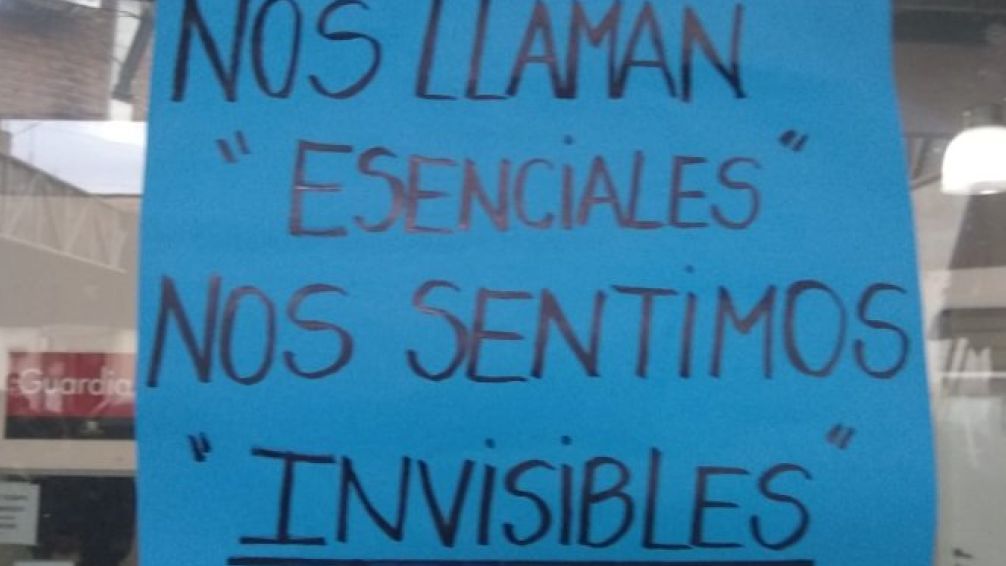 NOS LLAMAN
"ESENCIALES"
NOS SENTIMOS
"INVISIBLES"
Guardia